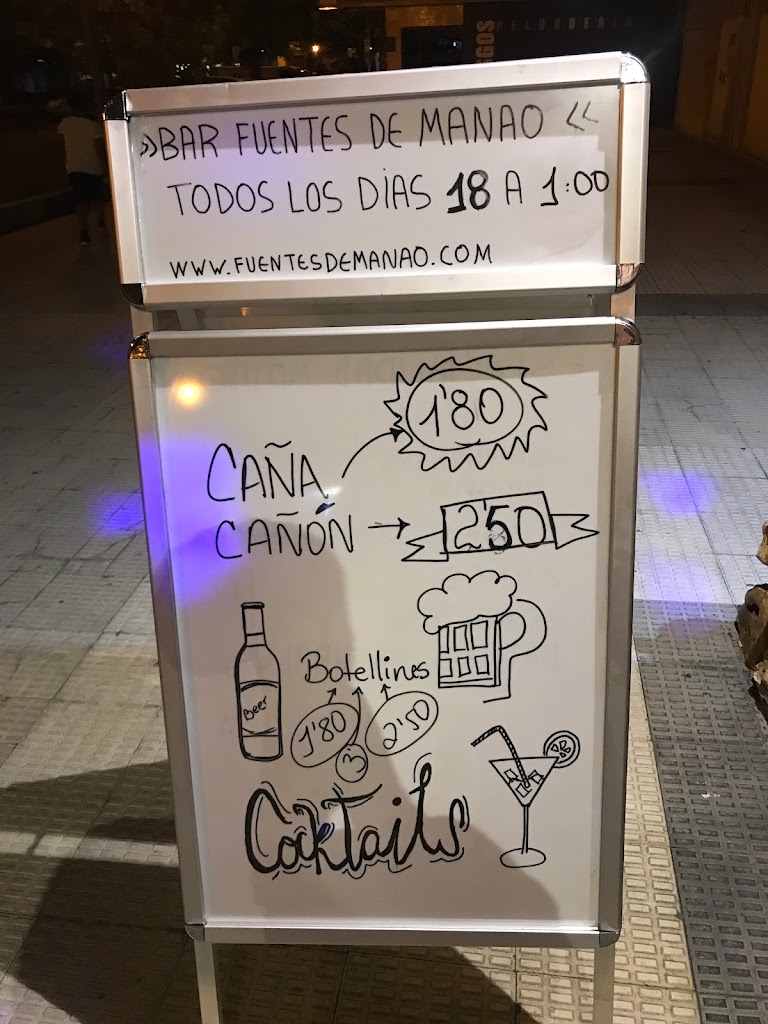 PELUQUERIA
» BAR FUENTES DE MANAO «
TODOS LOS DIAS 18 A 1:00
WWW.FUENTESDEMANAO.COM
1'80
CAÑA
CAÑÓN → 2'50
Botellines
Beer
1'80 3 2'50
Cocktails